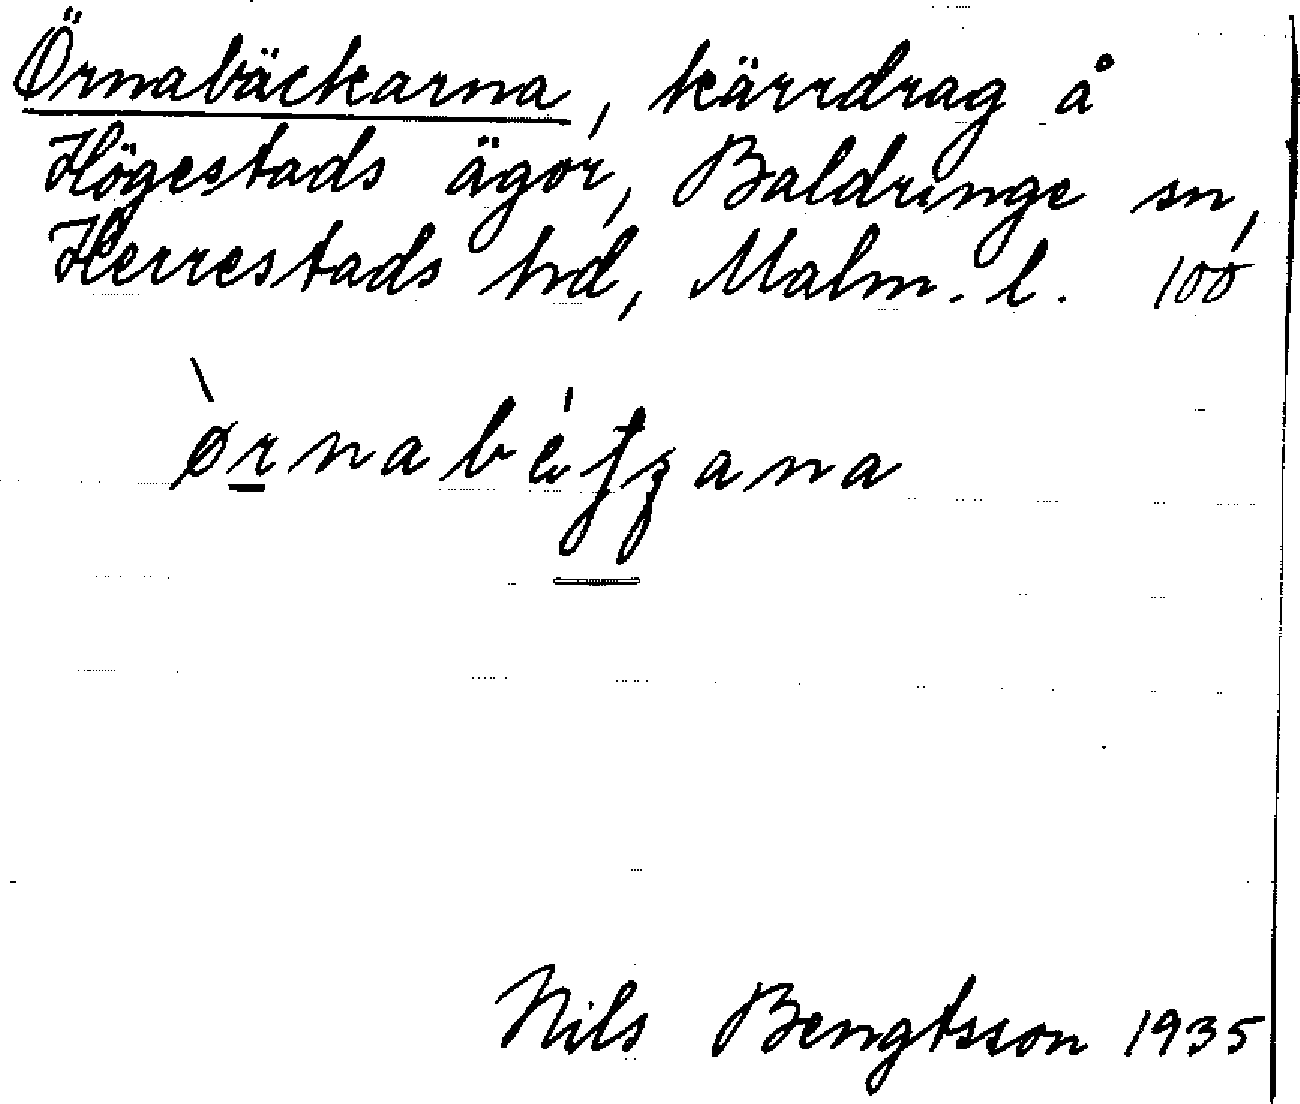 Örnabäckarna, kärrdrag å
Högestads ägor, Baldringe sn,
Herrestads hd, Malm. l. 100
Nils Bengtsson 1935